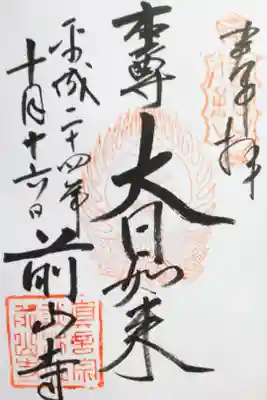 奉拝
本尊
大日如来
平成二十四年
十月十六日
前山寺